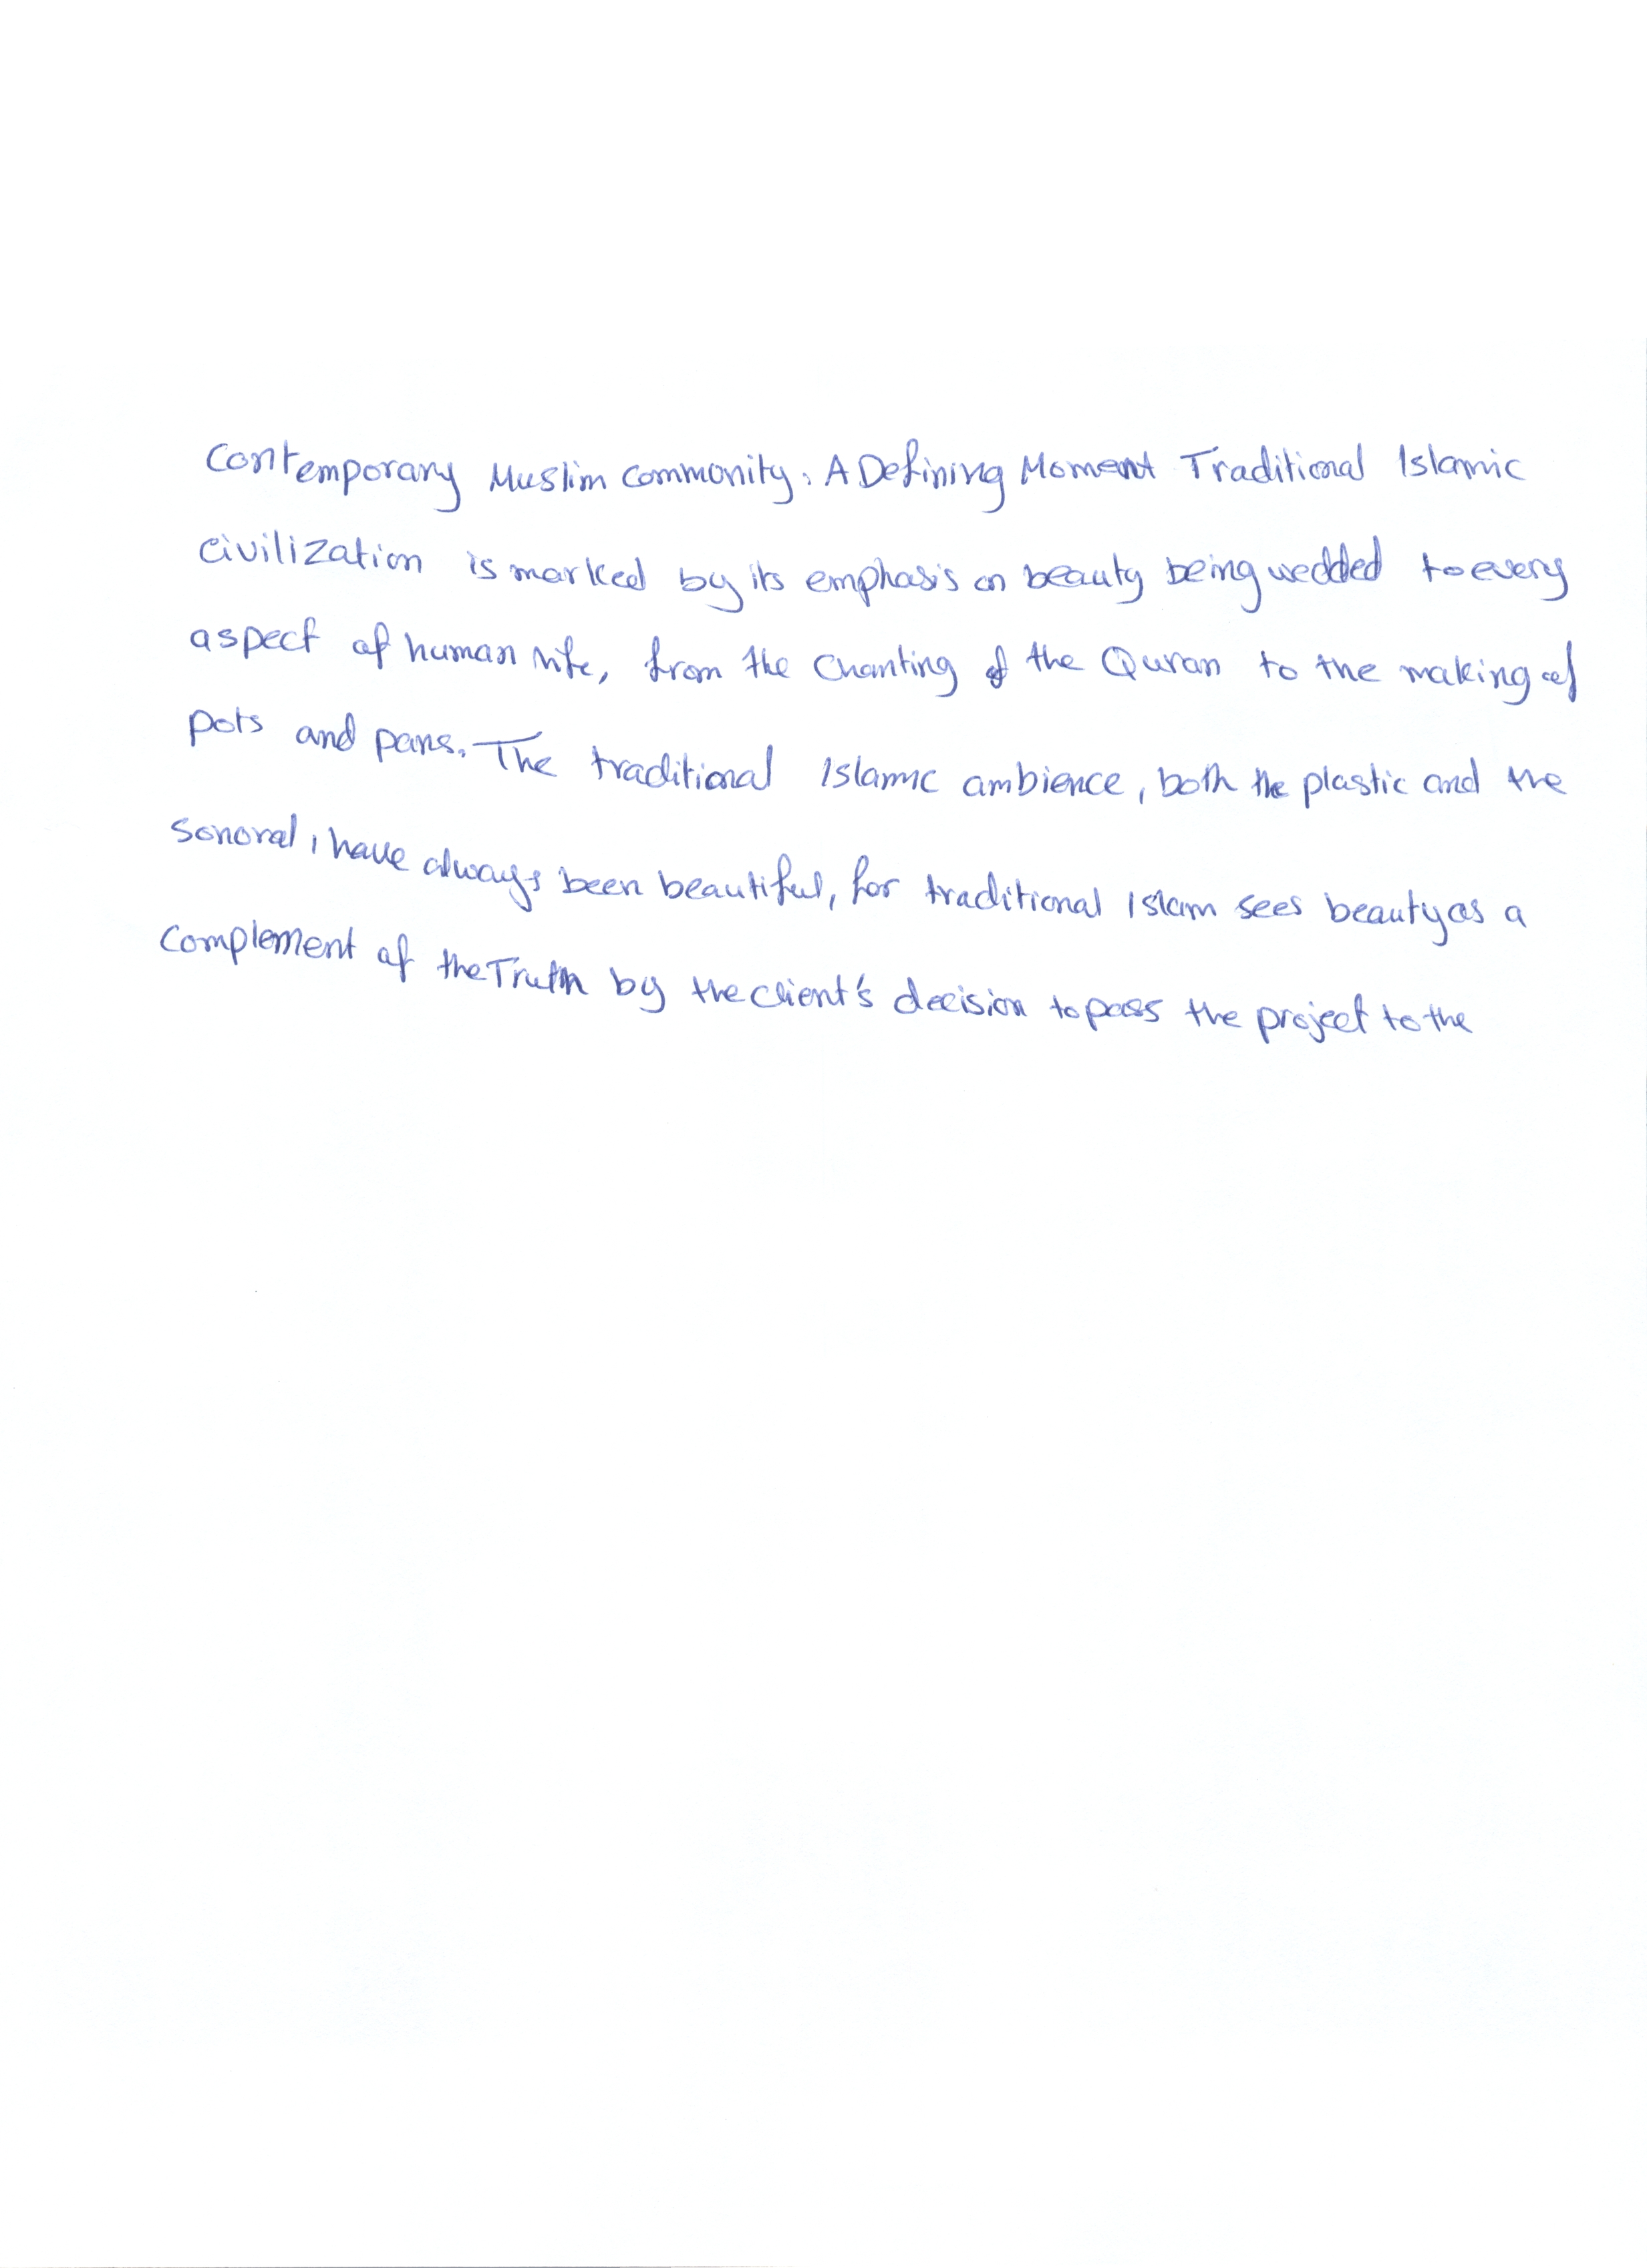 Contemporary Muslim Commonity: A Defining Moment Traditional Islamic
civilization is marked by its emphasis on beauty being wedded to every
aspect of human life, from the Chanting of the Quran to the making of
pots and pans. The traditional Islamic ambience, both the plastic and the
Sonoral, have always been beautiful, for traditional Islam sees beauty as a
Complement of the Truth by the client's decision to pass the project to the